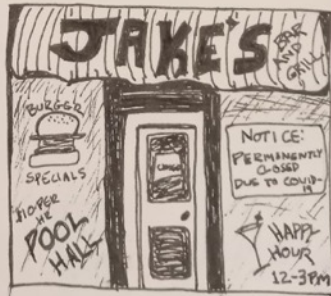 JAKE'S
BAR
AND
GRILL
BURGER
SPECIALS
$10 PER
HR
POOL
HALL
NOTICE:
PERMANENTLY
CLOSED
DUE TO COVID-
19
HAPPY
HOUR
12-3PM